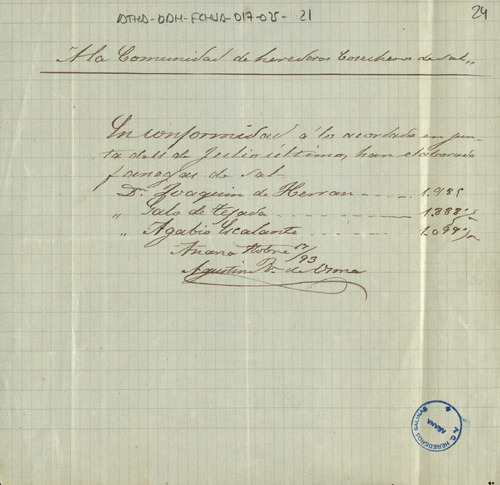 ATHA-DAH-FCHSA-017-035-21
24
A la Comunidad de herederos Cosecheros de sal,,
En conformidad á lo acordado en jun-
ta del 1 de Julio último, han elaborado
fanegas de sal
Dn. Joaquin de Herran 1,935
,, Galo de tejada 1,388
,, Agabio Escalante 1,099 1/2
Añana Nobre 17/93
Agustin R. de Orma
C. HEREDEROS SALINAS
AÑANA